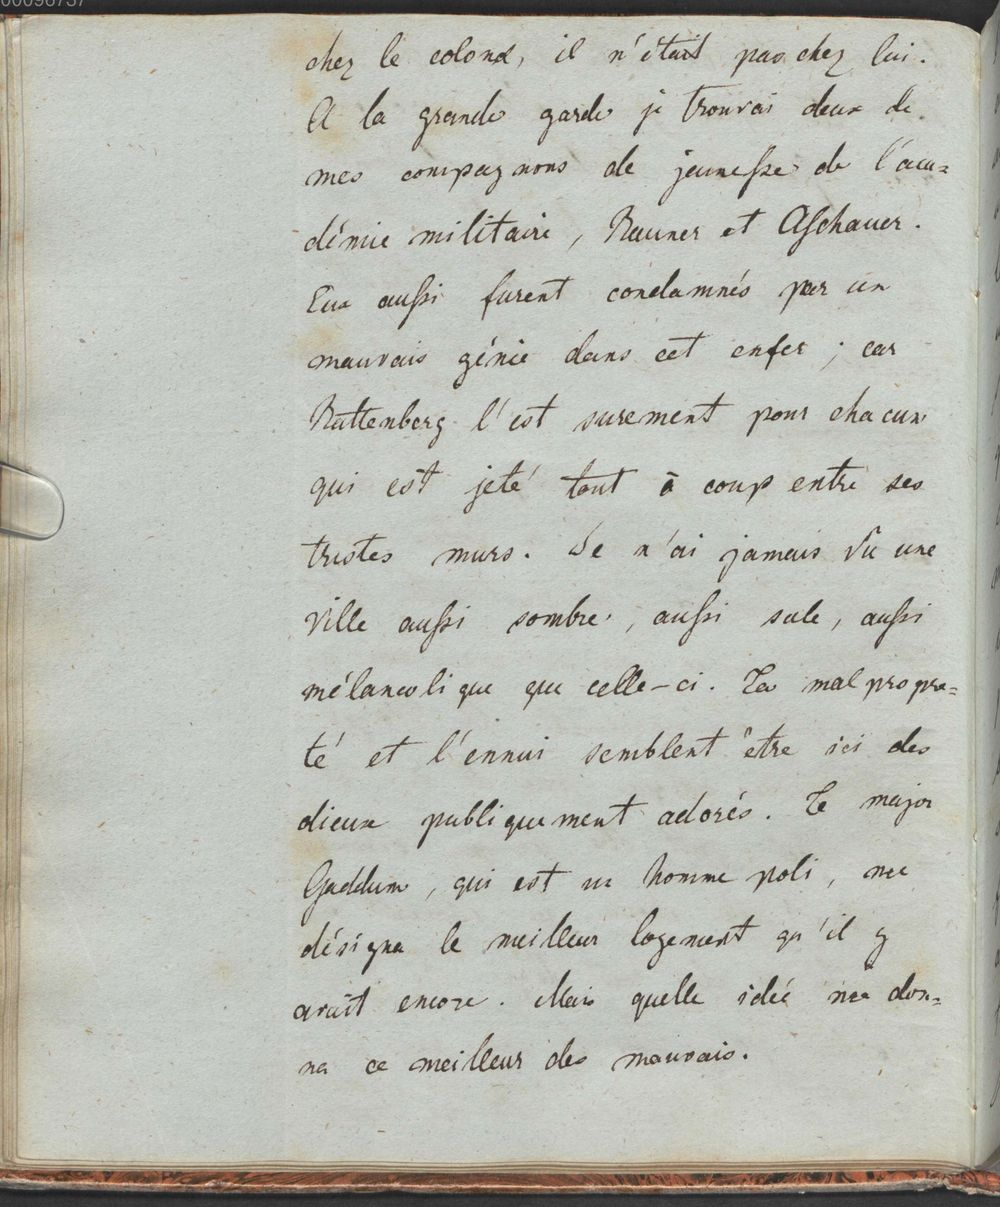 00096737
chez le colonel, il n'était pas chez lui.
A la grande garde je trouvai deux de
mes compagnons de jeunesse de l'aca=
démie militaire, Rauner et Aschauer.
Eux aussi furent condamnés par un
mauvais génie dans cet enfer ; car
Rattenberg l'est surement pour chacun
qui est jeté tout à coup entre ses
tristes murs. Je n'ai jamais vu une
ville aussi sombre, aussi sale, aussi
mélancolique que celle-ci. La malpropre=
té et l'ennui semblent être ici des
dieux publiquement adorés. Le major
Gaddum, qui est un homme poli, me
désigna le meilleur logement qu'il y
avait encore. Mais quelle idée me don=
na ce meilleur des mauvais.